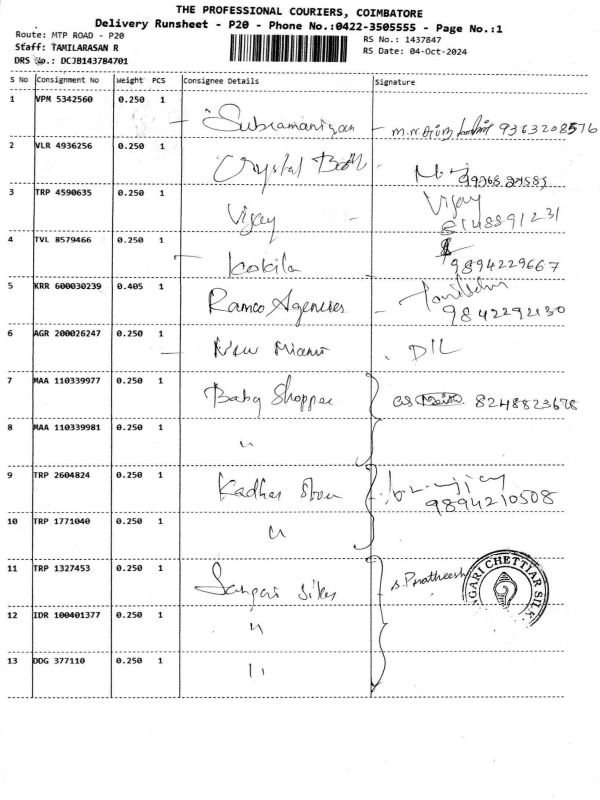 THE PROFESSIONAL COURIERS, COIMBATORE
Delivery Runsheet - P20 - Phone No.:0422-3505555 - Page No.:1
Route: MTP ROAD - P20
RS No.: 1437847
Staff: TAMILARASAN R
RS Date: 04-Oct-2024
DRS No.: DCJB143784701
S No Consignment No Weight PCS Consignee Details Signature
1 VPM 5342560 0.250 1 Subramaniyan 9363208576
2 VLR 4936256 0.250 1 Crystal
3 TRP 4590635 0.250 1 Vijay Vijay
8148891231
4 TVL 8579466 0.250 1 Kokila
9894229667
5 KRR 600030239 0.405 1 Ramco Agencies
6 AGR 200026247 0.250 1 New DIL
7 MAA 110339977 0.250 1 Baby Shoppee 8248823678
8 MAA 110339981 0.250 1 "
9 TRP 2604824 0.250 1 Kadhar
9894210508
10 TRP 1771040 0.250 1 "
11 TRP 1327453 0.250 1 S. Pratheesh
GARI CHETTIAR SILK
12 IDR 100401377 0.250 1 "
13 DDG 377110 0.250 1 "